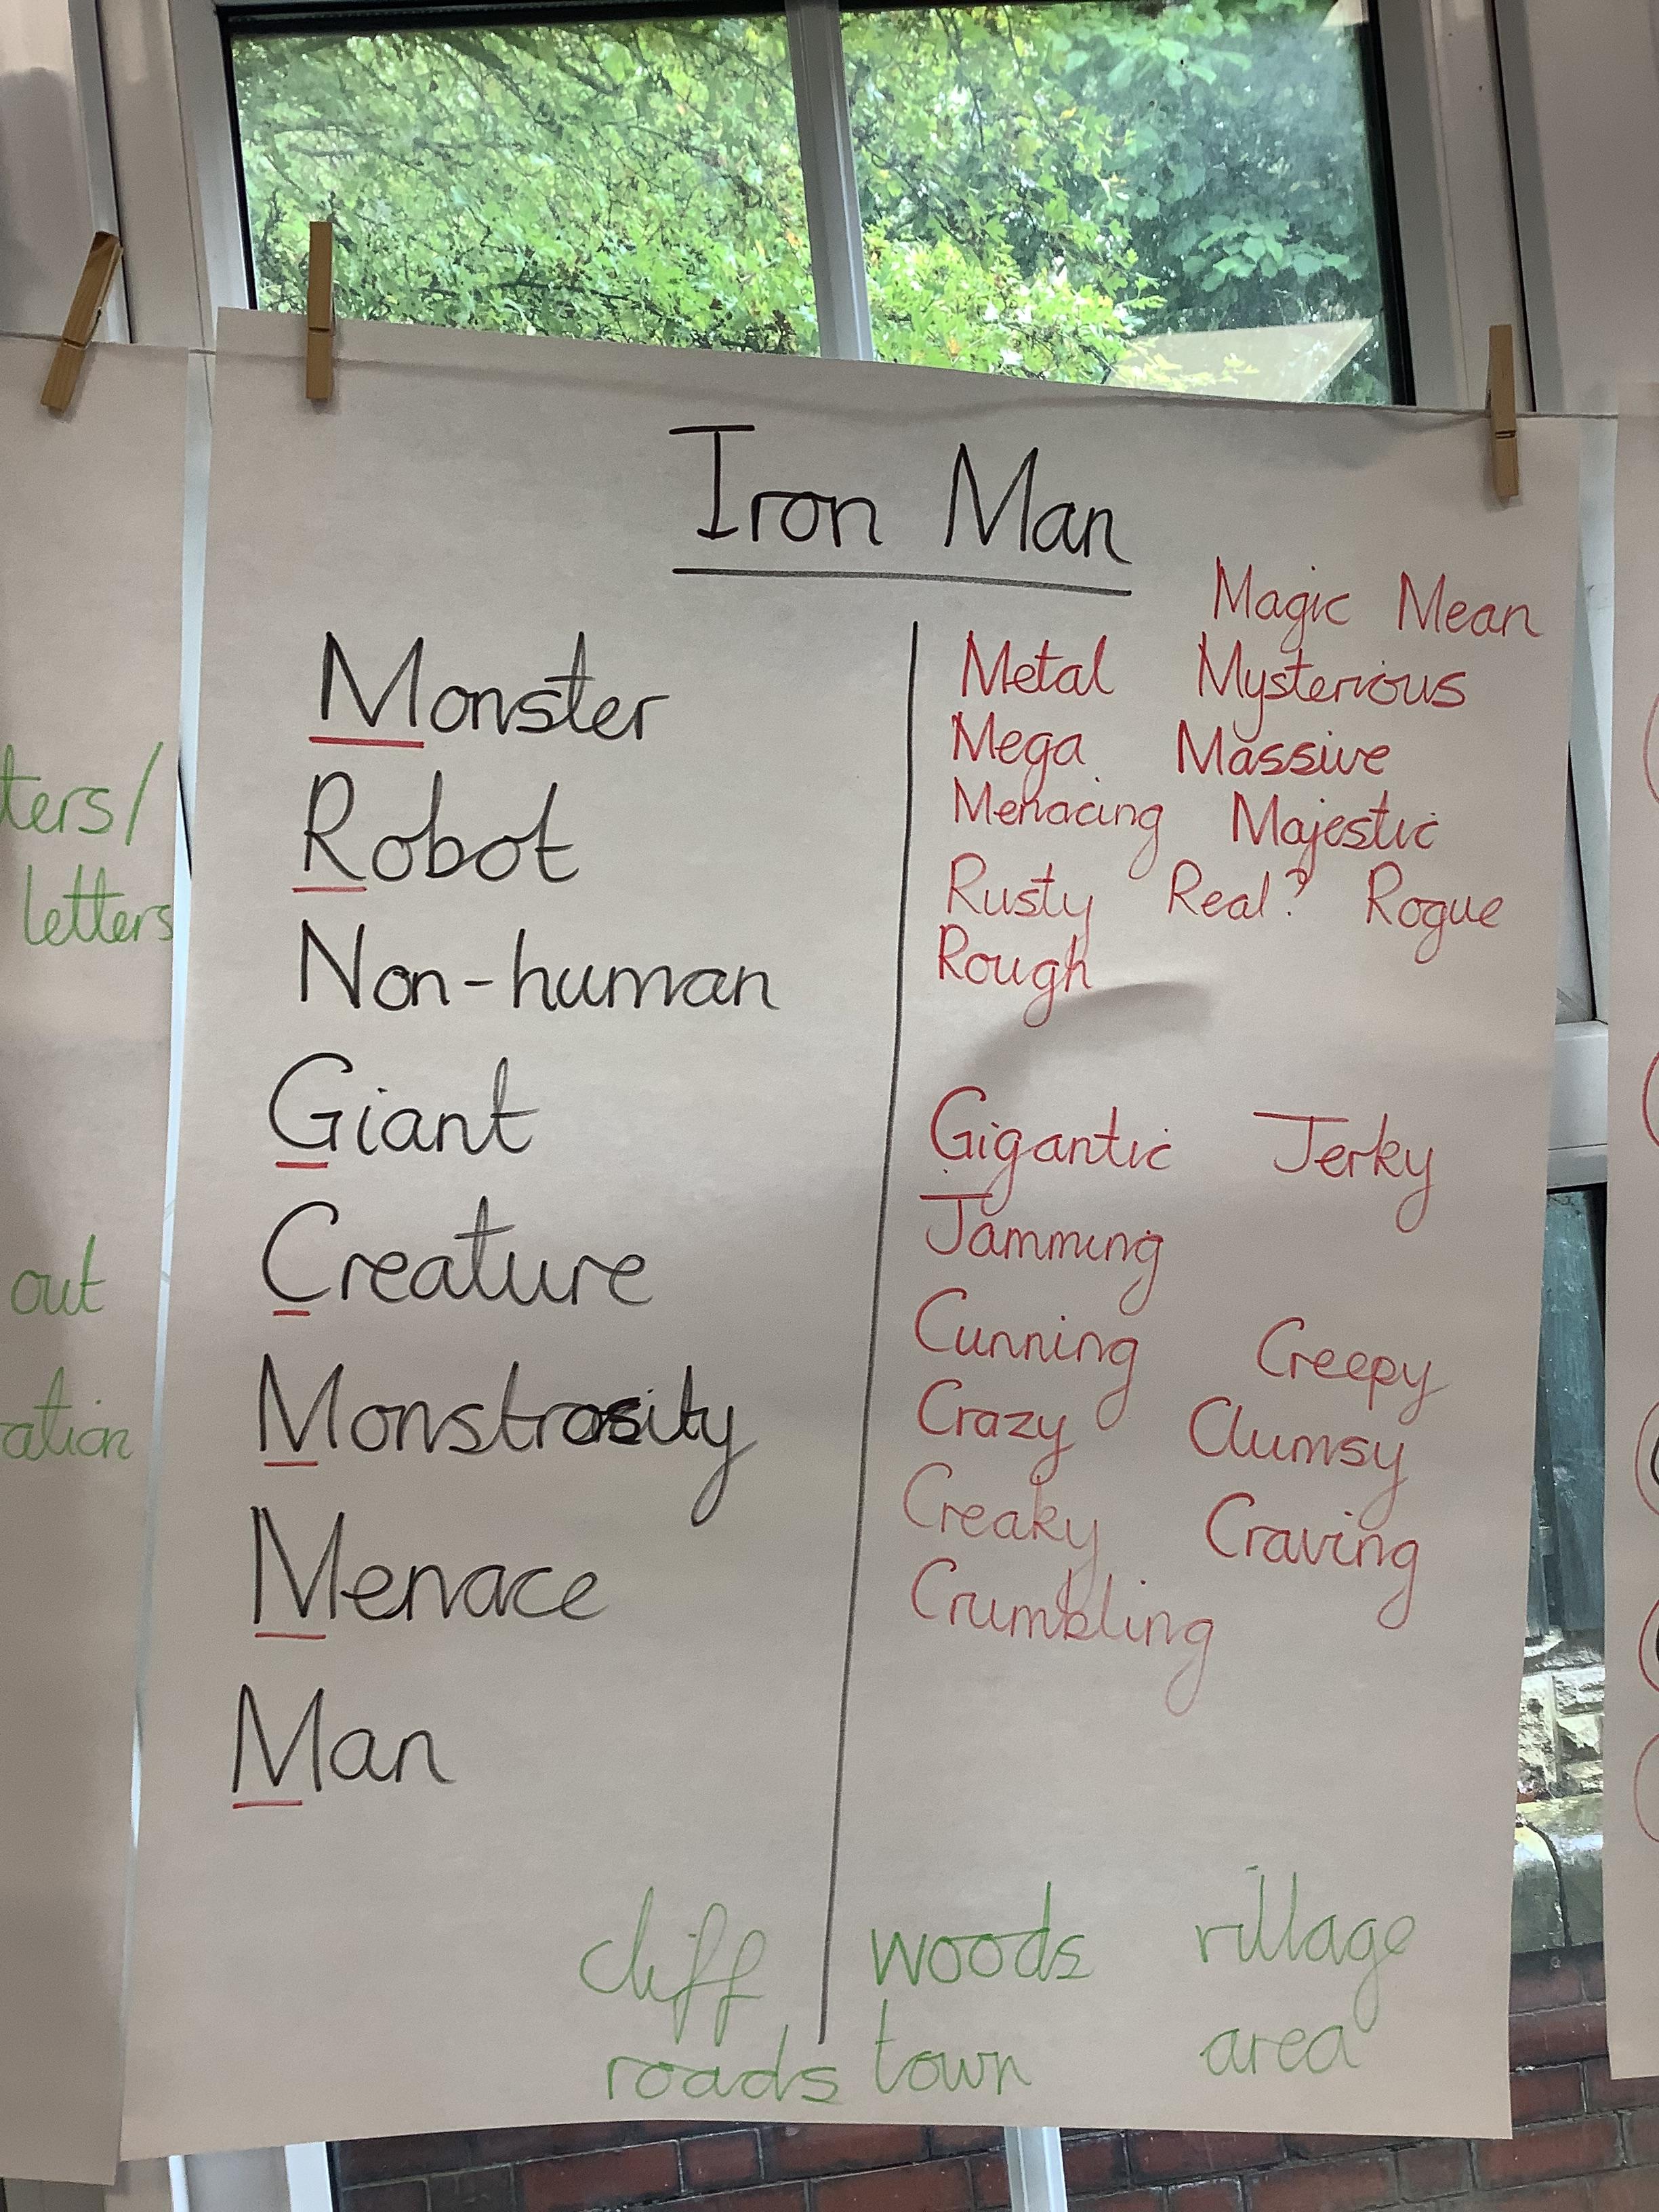 Iron Man
Magic Mean
Monster
Robot
Non-human
Giant
Creature
Monstrosity
Menace
Man
Metal Mysterious
Mega Massive
Menacing Majestic
Rusty Real? Rogue
Rough
Gigantic Jerky
Jamming
Cunning Creepy
Crazy Clumsy
Creaky Craving
Crumbling
cliff woods village
roads town area
ters/
letters
out
ation